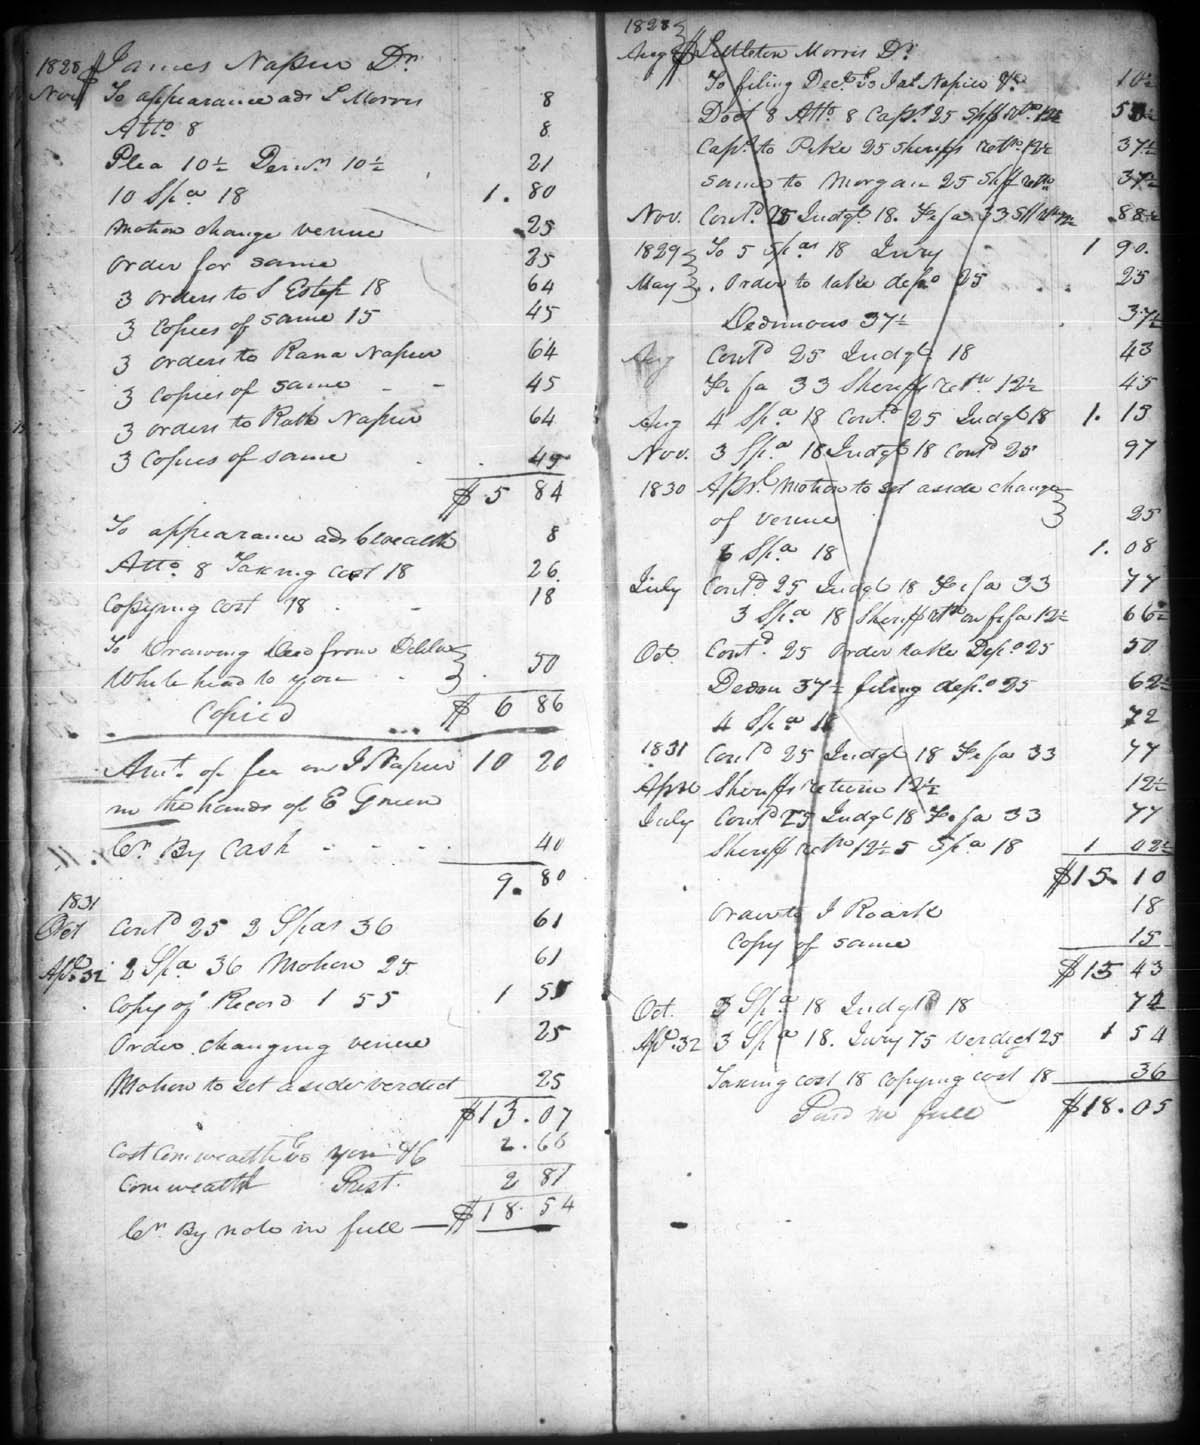 1828 James Napier Dr
Nov To appearance ads L Morris 8
Atto 8 8
Plea 10½ Demr 10½ 21
10 Spa 18 1.80
Motion change venue 25
Order for same 25
3 orders to S Estep 18 64
3 Copies of same 15 45
3 orders to Rana Napier 64
3 Copies of same - - 45
3 orders to Rath Napier 64
3 Copies of same 45
$5 84
To appearance ads Cwealth 8
Atto 8 Taking cost 18 26
Copying cost 18 18
To Drawing Deed from
White head to you 50
Copied $6 86
Amt of fee on J Napier 10 20
in the hands of E Green
Cr By Cash - - - 40
9.80
1831
Oct Contd 25 2 Spas 36 61
Apl 32 2 Spa 36 Motion 25 61
Copy of Record 1 55 1 55
Order changing venue 25
Motion to set aside verdict 25
$13.07
Cost Comwealth vs you &c 2.66
Comwealth 2 81
Cr By note in full $18.54
1828
Aug Littleton Morris Dr
To filing Decl vs Jas Napier &c 10½
Doct 8 Atto 8 Caps 25 Shff retn 12½ 53½
Caps to Pike 25 Sheriffs retn 12½ 37½
same to Morgan 25 Shff retn 37½
Nov. Contd 25 Judgt 18. Fi fa 33 Shff retn 12½ 88½
1829 To 5 Spas 18 Jury 1 90.
May . Order to take depo 25 25
Dedimous 37½ 37½
Aug Contd 25 Judgt 18 43
Fi fa 33 Sheriffs retn 12½ 45
Aug 4 Spa 18 Contd 25 Judgt 18 1.15
Nov. 3 Spa 18 Judgt 18 Contd 25 97
1830 Aprl Motion to set aside change
of venue 25
6 Spa 18 1.08
July Contd 25 Judgt 18 Fi fa 33 77
3 Spa 18 Sheriff retn on fi fa 12½ 66½
Oct. Contd. 25 order take Depo 25 50
Dedm 37½ filing depo 25 62½
4 Spa 18 72
1831 Contd 25 Judgt 18 Fi fa 33 77
Aprl Sheriffs return 12½ 12½
July Contd 25 Judgt 18 Fi fa 33 77
Sheriff retn 12½ 5 Spa 18 1 02½
$15.10
Order to J Roark 18
Copy of same 15
$15 43
Oct. 3 Spa 18 Judgt 18 72
Apl. 32 3 Spa 18. Jury 75 verdict 25 1 54
Taking cost 18 copying cost 18 36
Paid in full $18.05